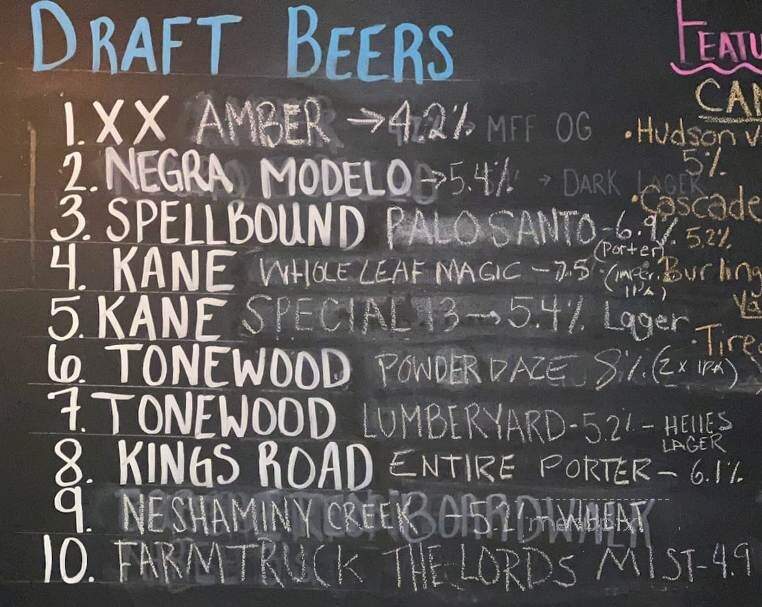 DRAFT BEERS
1. XX AMBER → 4.2% MFF OG
2. NEGRA MODELO → 5.4% → DARK LAGER
3. SPELLBOUND PALO SANTO - 6.9% (Porter)
4. KANE WHOLE LEAF MAGIC - 7.5 (imper. IPA)
5. KANE SPECIAL 13 → 5.4% Lager
6. TONEWOOD POWDER DAZE 8% (2x IPA)
7. TONEWOOD LUMBERYARD - 5.2% - HElles LAGER
8. KINGS ROAD ENTIRE PORTER - 6.1%
9. NESHAMINY CREEK - 5.2% WHEAT
10. FARMTRUCK THE LORDS MIST - 4.9
FEATU
CAN
• Hudson V
5%
• Cascade
5.2%
Burling
• Tired